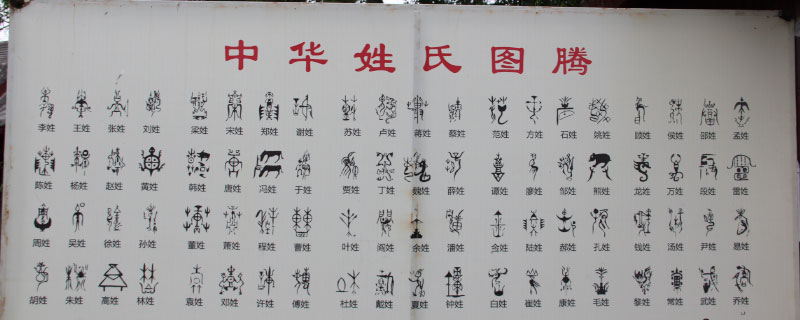 中华姓氏图腾
李姓 王姓 张姓 刘姓 梁姓 宋姓 郑姓 谢姓 苏姓 卢姓 蒋姓 蔡姓 范姓 方姓 石姓 姚姓 顾姓 侯姓 邵姓 孟姓
陈姓 杨姓 赵姓 黄姓 韩姓 唐姓 冯姓 于姓 贾姓 丁姓 魏姓 薛姓 谭姓 廖姓 邹姓 熊姓 龙姓 万姓 段姓 雷姓
周姓 吴姓 徐姓 孙姓 董姓 萧姓 程姓 曹姓 叶姓 阎姓 余姓 潘姓 金姓 陆姓 郝姓 孔姓 钱姓 汤姓 尹姓 易姓
胡姓 朱姓 高姓 林姓 袁姓 邓姓 许姓 傅姓 杜姓 戴姓 夏姓 钟姓 白姓 崔姓 康姓 毛姓 黎姓 常姓 武姓 乔姓